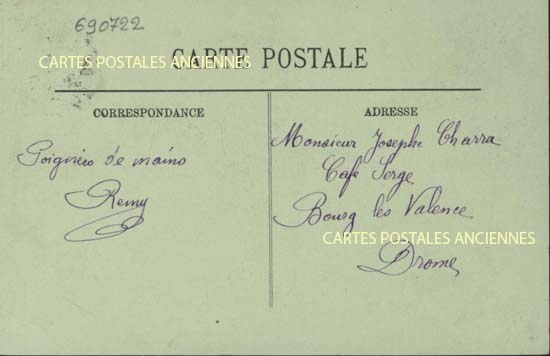 690722
CARTE POSTALE
CARTES POSTALES ANCIENNES
CORRESPONDANCE
Poignées de mains
Remy
ADRESSE
Monsieur Josephe Charra
Café Serge
Bourg les Valence
CARTES POSTALES ANCIENNES
Drome